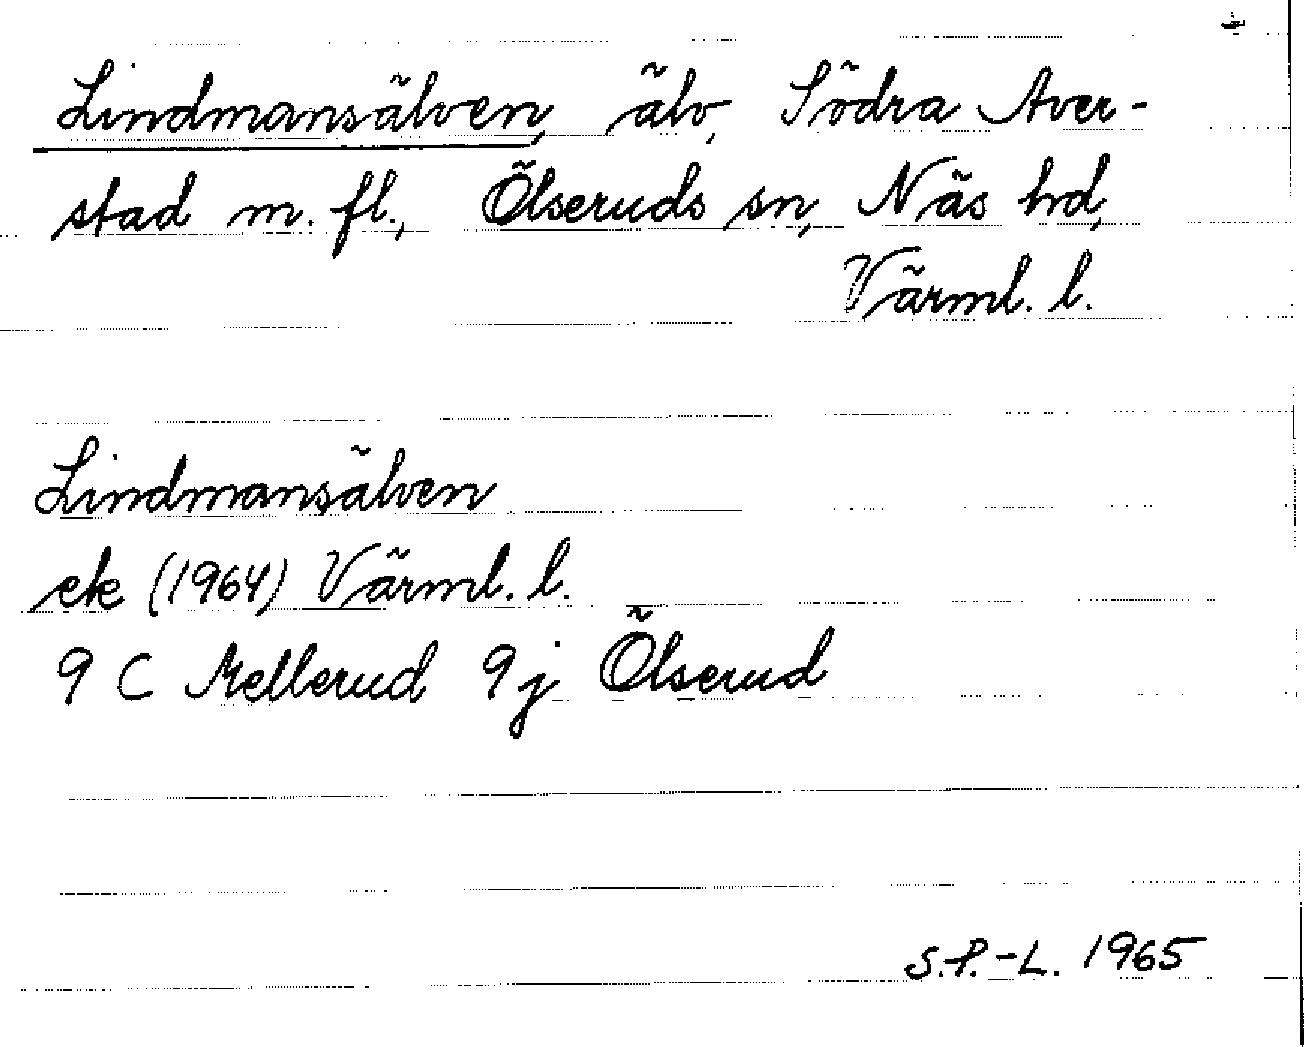 Lindmansälven, älv, Södra Aver-
stad m. fl., Ölseruds sn, Näs hd,
Värml. l.
Lindmansälven
ek (1964) Värml. l.
9 C Mellerud 9j Ölserud
S.P.-L. 1965